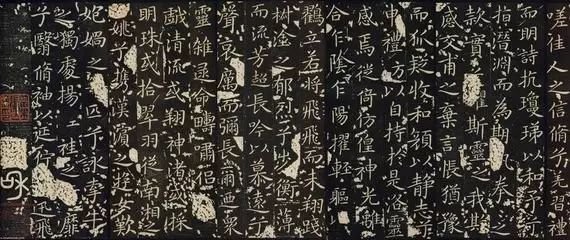 嗟佳人之信脩兮羌習禮
而明詩抗瓊珶以和予兮
指潛淵而為期執拳之
款實兮懼斯靈之我欺
感交甫之棄言悵猶豫
而狐疑收和顏以靜志兮
申禮防以自持於是洛靈
感焉徙倚彷徨神光離
合乍陰乍陽擢輕軀以
鶴立若將飛而未翔踐
椒塗之郁烈兮步衡薄
而流芳超長吟以慕遠兮
聲哀厲而彌長爾迺衆
靈雜遝命疇嘯侶或
戲清流或翔神渚或採
明珠或拾翠羽從南湘之
二妃兮攜漢濱之遊女歎
媧之匹兮詠牽牛
之獨處揚袿之靡
兮翳脩袖以延佇迅飛